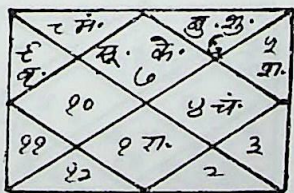 ८ मं. बु. शु.
९ बृ. सू. के. ६ ५ श.
७
१० ४ चं.
११ १ रा. ३
१२ २